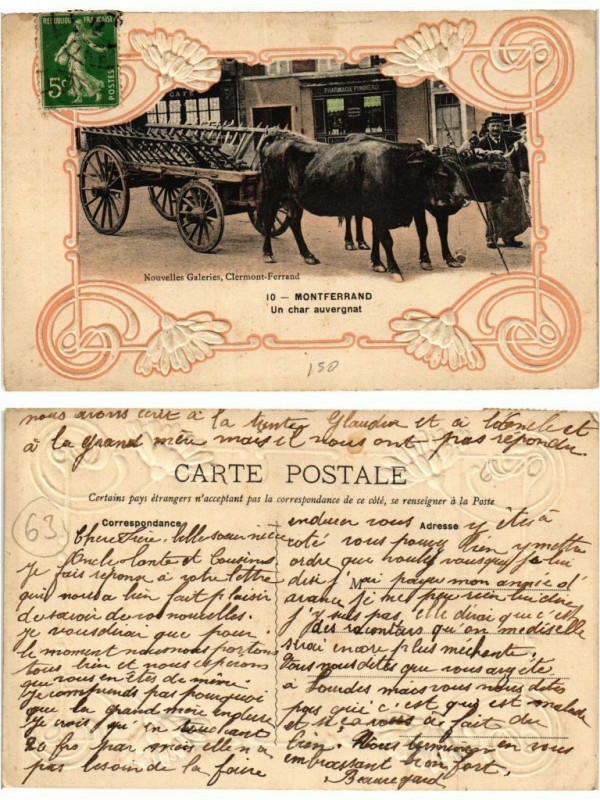 REPUBLIQUE FRANCAISE
5c
POSTES
CAFÉ
PHARMACIE
Nouvelles Galeries, Clermont-Ferrand
10 — MONTFERRAND
Un char auvergnat
150
nous avons écrit à la tante Glaudia et à l'Oncle et
à la grand mère mais il nous ont pas répondu
CARTE POSTALE
Certains pays étrangers n'acceptant pas la correspondance de ce côté, se renseigner à la Poste
63
Correspondance
Chere Frère, belle soeur nièce
Oncle tante et Cousins
Je fais reponse à votre lettre
qui nous a bien fait plaisir
de savoir de vos nouvelles.
Je vous dirai que pour
le moment nous nous portons
tous bien et nous esperons
que vous en êtes de même.
Je comprends pas pourquoi
que la grand mère
Je crois qu'en touchant
20 frs par mois elle n'a
pas besoin de la faire
Adresse
endurer vous y êtes à
coté vous pouvez bien y mettre
ordre que voulez vous que je lui
dise j'ai payer mon
avance je ne peu rien lui dire
j'y suis pas elle dirai que c'est
des racontars
serai encore plus mechente.
Vous nous dites que vous avez étés
à Lourdes mais vous nous dites
pas que c'est qui est malade
et si ca vous a fait du
bien. Nous terminons en vous
embrassant bien fort.
Beauregard